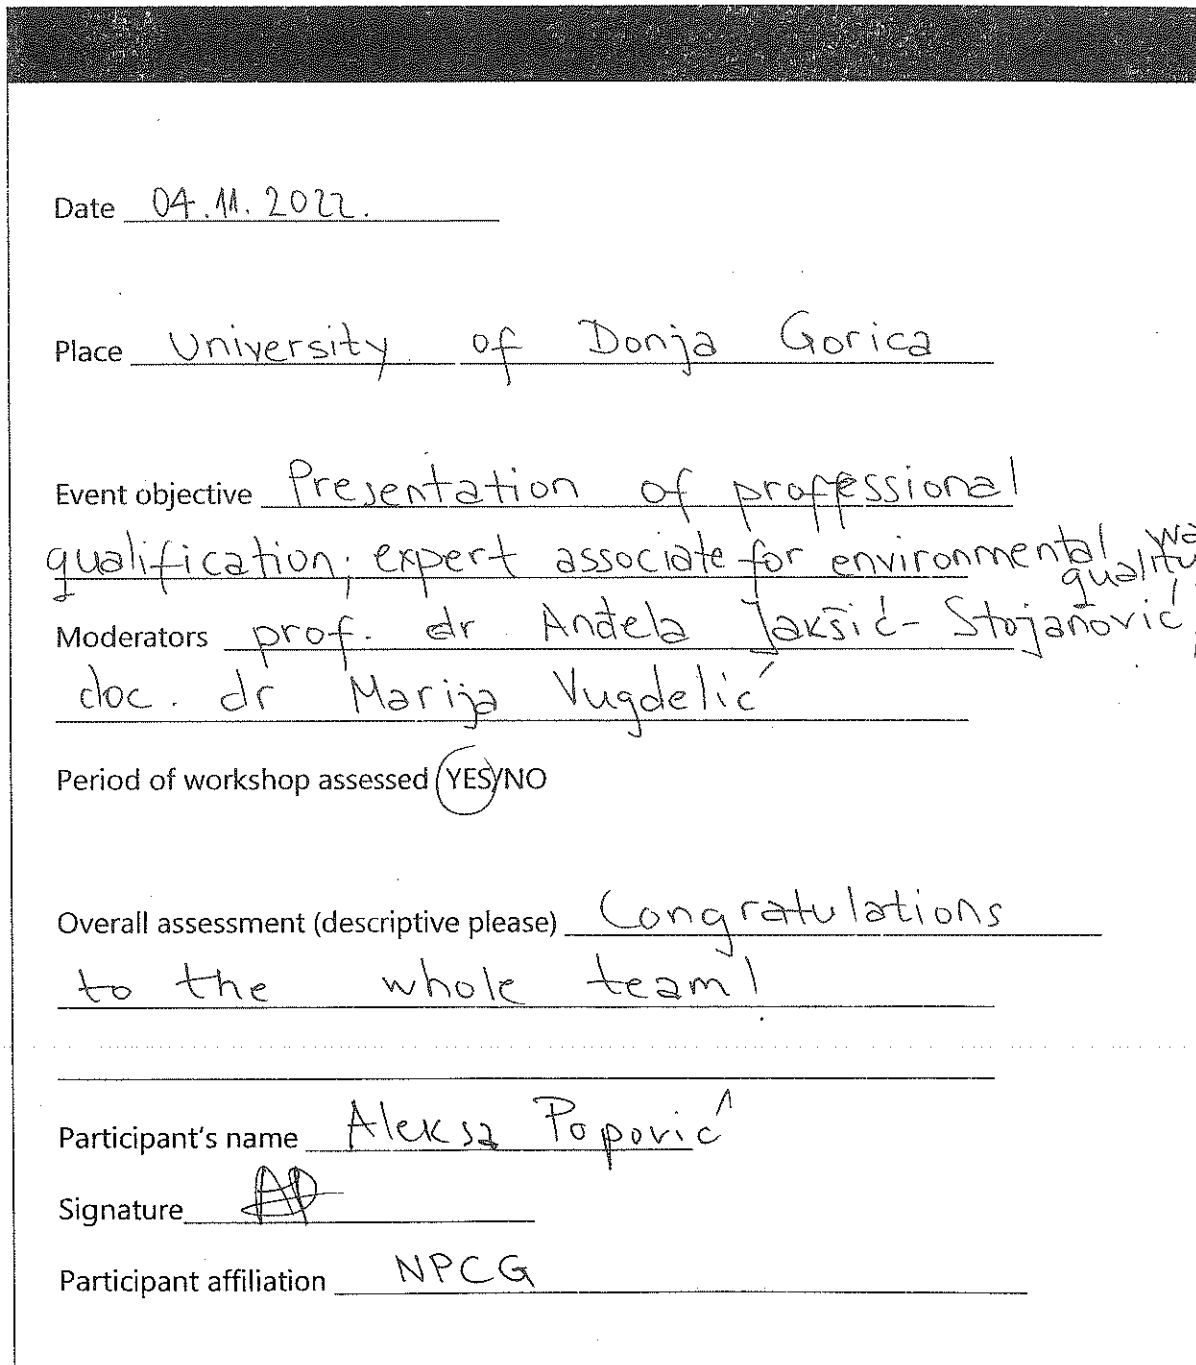 Date 04.11.2022.
Place University of Donja Gorica
Event objective Presentation of proffessional
qualification; expert associate for environmental
quality
Moderators prof. dr Anđela Jakšić-Stojanović,
doc. dr Marija Vugdelić
Period of workshop assessed YES/NO
Overall assessment (descriptive please) Congratulations
to the whole team!
Participant's name Aleksa Popović
Signature AP
Participant affiliation NPCG